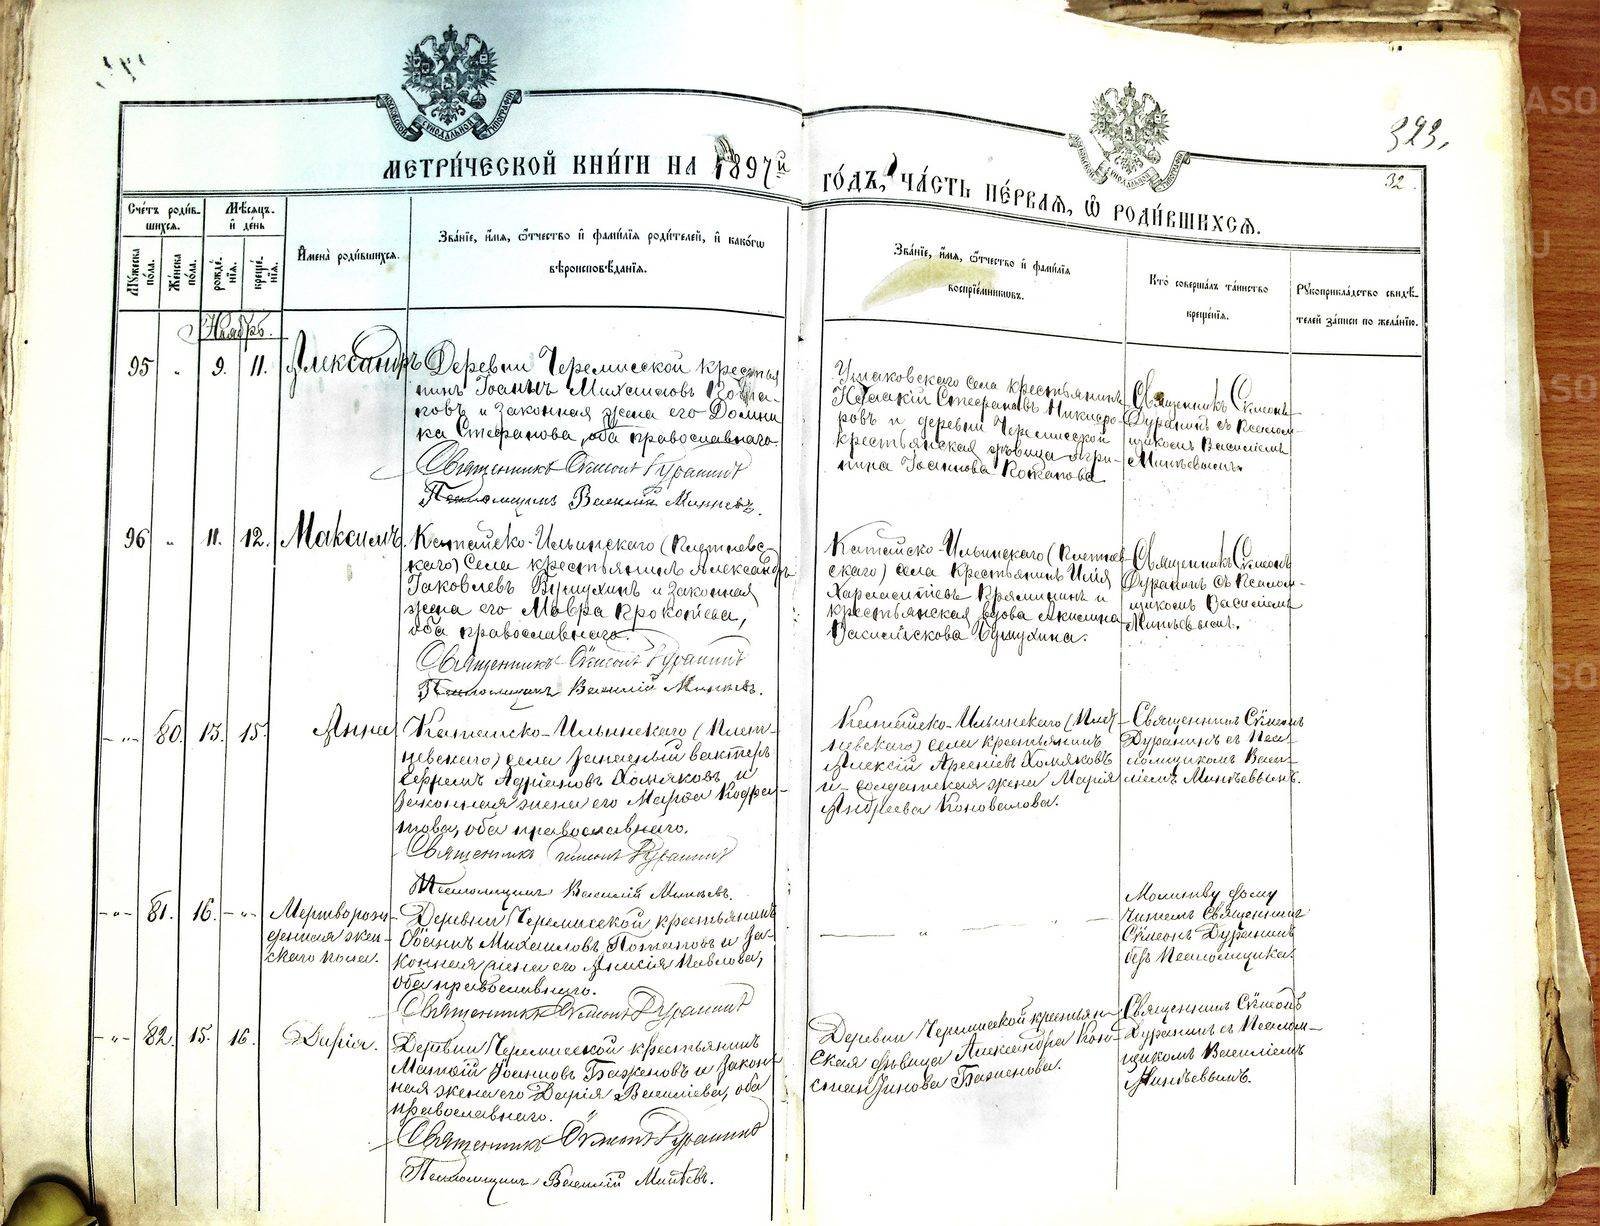 323.
32.
МОСКОВСКОЙ СѴНОДАЛЬНОЙ ТИПОГРАФІИ
МЕТРИ́ЧЕСКОЙ КНИ́ГИ НА 1897й ГО́ДЪ, ЧА́СТЬ ПЕ́РВАЯ, Ѽ РОДИ́ВШИХСЯ.
Счéтъ роди́в-
шихся.
Мѣ́сяцъ
и де́нь
Мꙋжеска по́ла.
Же́нска по́ла.
рожде́-
нія.
креще́-
нія.
Имена̀ роди́вшихся.
Зва́ніе, и́мя, ѻ҆́тчество и фами́лія роди́телей, и како́гѡ
вѣроисповѣ́данія.
Зва́ніе, и́мя, ѻ҆́тчество и фами́лія
воспріе́мникѡвъ.
Кто̀ соверша́лъ та́инство
креще́нія.
Рꙋкоприкла́дство свидѣ́-
телей за́писи по жела́нію.
Ноябрь.
95 " 9. 11. Александръ
Деревни Черемисской крестья
нинъ Іоаннъ Михаиловъ
и законная жена его Домни
ка Стефанова, оба православнаго
Священникъ Сѵмеонъ Дуранинъ
Псаломщикъ Василій Минѣевъ.
Ушаковскаго села крестьянинъ
Стефановъ Никифо-
ровъ и деревни Черемисской
крестьянская дѣвица Агри-
пина Іоаннова
Священникъ Сѵмеонъ
Дуранинъ съ Псалом-
щикомъ Василіемъ
Минѣевымъ.
96 " 11. 12. Максимъ.
Катайско-Ильинскаго (Плетневс-
каго) села крестьянинъ Александръ
Іаковлевъ и законная
жена его Мавра Прокопіева,
оба православнаго.
Священникъ Сѵмеонъ Дуранинъ
Псаломщикъ Василій Минѣевъ.
Катайско-Ильинскаго (Плетнев-
скаго) села крестьянинъ Илія
Харлампіевъ и
крестьянская вдова Акилина
Священникъ Сѵмеонъ
Дуранинъ съ Псалом-
щикомъ Василіемъ
Минѣевымъ.
-"- 80. 13. 15. Анна
Катайско-Ильинскаго (Плет-
невскаго) села запасный вахтеръ
Ефремъ Адріановъ Хомяковъ и
законная жена его Марѳа Кодра-
това, оба православнаго.
Священникъ Сѵмеонъ Дуранинъ
Псаломщикъ Василій Минѣевъ.
Катайско-Ильинскаго (Плет-
невскаго) села крестьянинъ
Алексій Арсеніевъ Хомяковъ
и солдатская жена Марія
Андреева Коновалова.
Священникъ Сѵмеонъ
Дуранинъ съ Пса-
ломщикомъ Васи-
ліемъ Минѣевымъ.
-"- 81. 16. -"- Мертворож-
денная жен-
скаго пола.
Деревни Черемисской крестьянинъ
Іоаннъ Михаиловъ Потаповъ и за-
конная жена его Анисія Павлова,
оба православнаго.
Священникъ Сѵмеонъ Дуранинъ
— " —
Молитву дому
читалъ Священникъ
Сѵмеонъ Дуранинъ
безъ Псаломщика.
-"- 82. 15. 16. Дарія.
Деревни Черемисской крестьянинъ
Матѳій Іоанновъ Баженовъ и закон-
ная жена его Дарія Василіева, оба
православнаго.
Священникъ Сѵмеонъ Дуранинъ
Псаломщикъ Василій Минѣевъ.
Деревни Черемисской крестьян-
ская дѣвица Александра Кон-
стантинова Баженова.
Священникъ Сѵмеонъ
Дуранинъ съ Псалом-
щикомъ Василіемъ
Минѣевымъ.